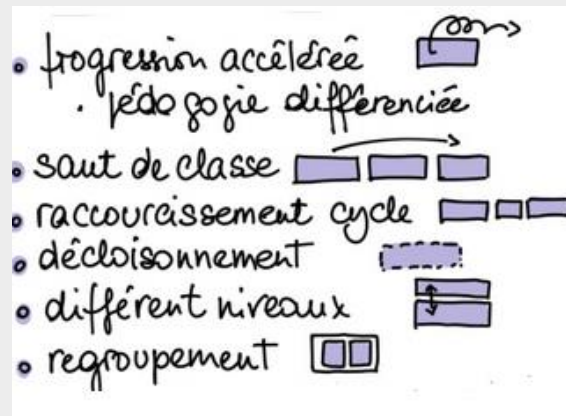 • progression accéléréé
• pédagogie différenciée
• saut de classe
• raccourcissement cycle
• décloisonnement
• différent niveaux
• regroupement